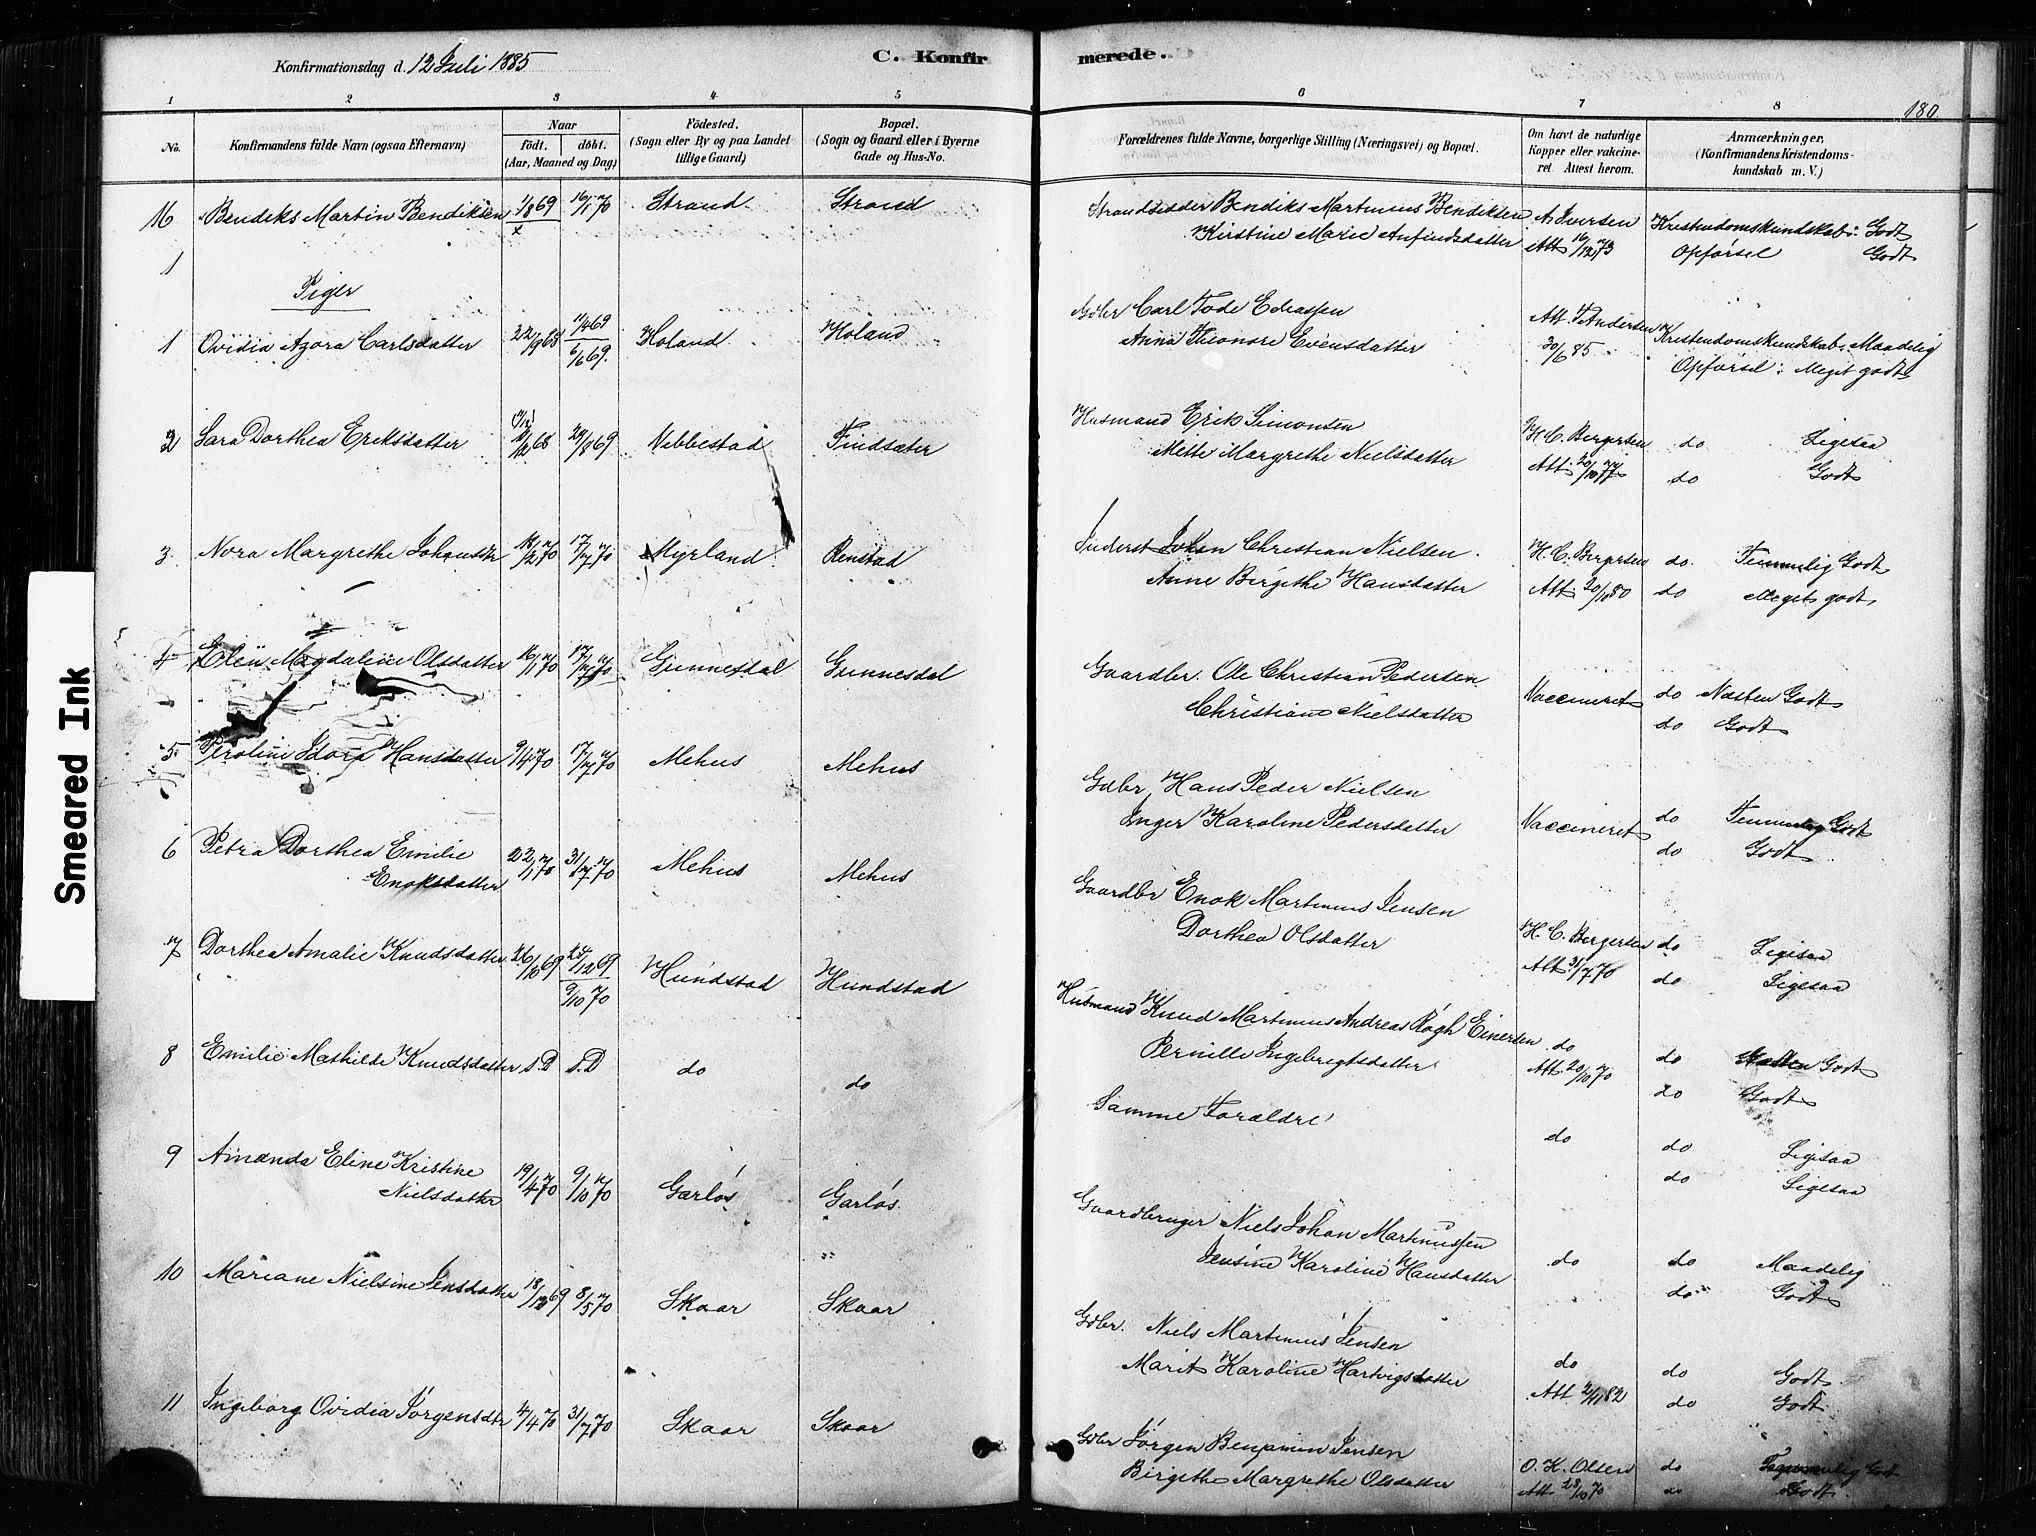 Konfirmationsdag d. 12 Juli 1885
C. Konfir
merede.
180
1 2 3 4 5 6 7 8
No.
Konfirmandens fulde Navn (ogsaa Efternavn)
Naar
födt. döbt.
(Aar, Maaned og Dag)
Födested.
(Sogn eller By og paa Landet
tillige Gaard)
Bopæl.
(Sogn og Gaard eller i Byerne
Gade og Hus-No.
Forældrenes fulde Navne, borgerlige Stilling (Næringsvei) og Bopæl.
Om havt de naturlige
Kopper eller vakcine-
ret Attest herom.
Anmærkninger,
(Konfirmandens Kristendoms-
kundskab m. V.)
16 Bendiks Martin Bendiksen 1/8 69 16/1 70 Strand Strand Strandsidder Bendiks Martinus Bendiksen A. Iversen Kristendomskundskab: Godt
x Kirstine Marie Anfindsdatter Att 16/12 73 Opførsel Godt
1
Piger
1 Ovidia Azora Carlsdatter 22/9 68 11/4 69 Holand Holand Gdbr Carl Tode Ediassen Att. Andersen Kristendomskundskab: Maadelig
6/6 69. Anna Eleonore Evensdatter 30/6 85 Opførsel: Meget godt
2 Sara Dorthea Eriksdatter 68 29/8 69 Nebbestad Findsæter Husmand Erik Simonsen H. C. Bergersen do Ligesaa
Mette Margrethe Nielsdatter Att. 20/10 77 do Godt
3. Nora Margrethe Johansdtr 18/2 70 17/7 70 Myrland Renstad Inderst Johan Christian Nielsen H. C. Bergersen do Temmelig Godt
Anne Birgithe Hansdatter Att. 20/10 80 do Meget godt
4 Elen Magdaline Olsdatter 16/1 70 17/7 70 Gunnesdal Gunnesdal Gaardbr. Ole Christian Pedersen Vaccineret do Næsten Godt
Christiane Nielsdatter do Godt
5 Peroline Idora Hansdatter 9/4 70 17/7 70 Mehus Mehus Gdbr Hans Peder Nielsen Vaccineret do Temmelig Godt
Inger Karoline Pedersdatter do Godt
6 Petra Dorthea Emilie
Enoksdatter 22/1 70 31/7 70 Mehus Mehus Gaardbr Enok Martinus Jensen H. C. Bergersen do Ligesaa
Dorthea Olsdatter Att 31/7 70 do Ligesaa
7 Dorthea Amalie Knudsdatter 26/10 69 28/12 69 Hundstad Hundstad Husmand Knud Martinus Andreas Rögh Einersen do do Næsten Godt
9/10 70 Pernille Ingebrigtsdatter Att. 20/10 70 do Godt
8 Emilie Mathilde Knudsdatter s.D s.D do do Samme Forældre do do Ligesaa
do Ligesaa
9 Amanda Eline Kristine
Nielsdatter 19/4 70 9/10 70 Garløs Garløs Gaardbruger Niels Johan Martinussen do do Maadelig
Jensine Karoline Hansdatter do Godt
10 Mariane Nielsine Jensdatter 18/12 69 8/5 70 Skaar Skaar Gdbr. Niels Martinus Jensen do do Godt
Marit Karoline Hartvigsdatter Att 2/11 82 do Godt
11 Ingeborg Ovidia Jörgensdtr 4/4 70 31/7 70 Skaar Skaar Gdbr Jörgen Benjamin Jensen O. K. Olsen do Temmelig Godt
Birgithe Margrethe Olsdatter Att 28/10 70 do Godt
Smeared Ink